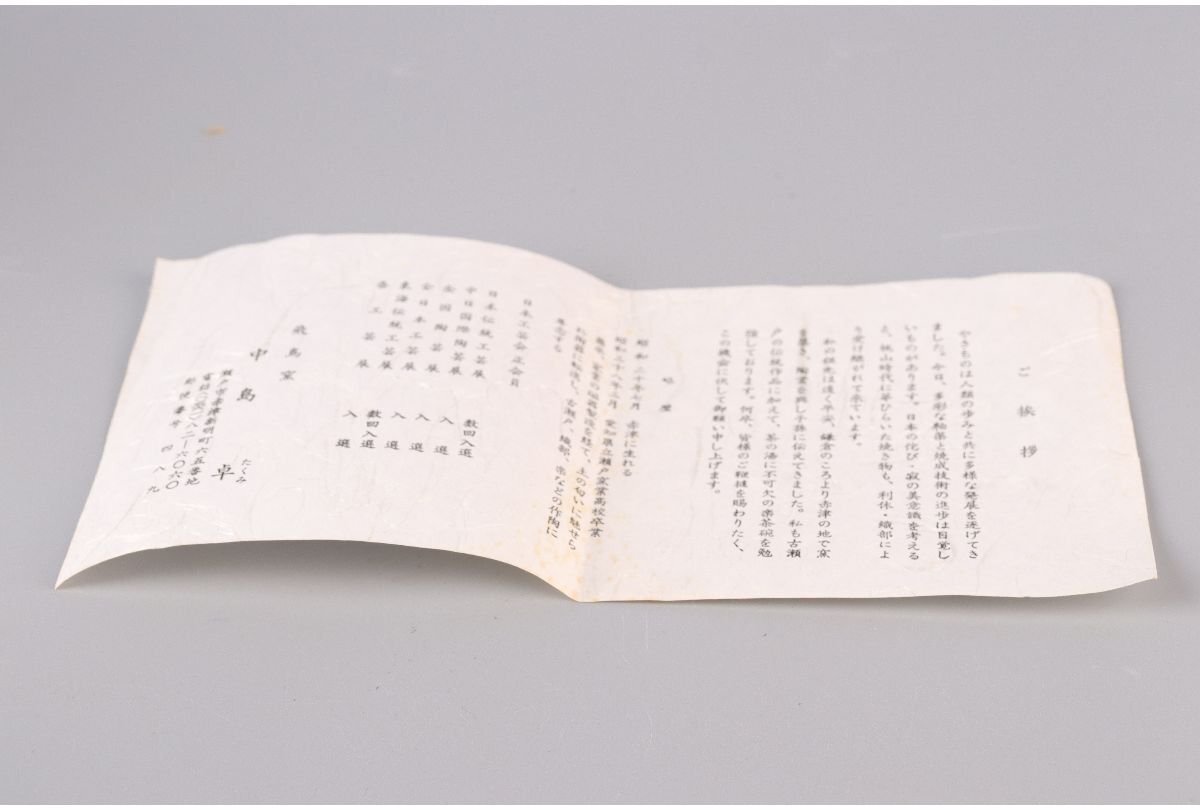 ご挨拶
やきものは人類の歩みと共に多様な発展を遂げてき
ました。今日、多彩な釉薬と焼成技術の進歩は目覚し
いものがあります。日本の侘び・寂の美意識を考える
と、桃山時代に華ひらいた焼き物も、利休・織部によ
り受け継がれて来ています。
私の祖先は遠く平安、鎌倉のころより赤津の地で窯
を築き、陶業を興し子孫に伝えてきました。私も古瀬
戸の伝統作品に加えて、茶の湯に不可欠の楽茶碗を勉
強しております。何卒、皆様のご鞭撻を賜わりたく、
この機会に伏して御願い申し上げます。
略歴
昭和二十年七月 赤津に生れる
昭和三十八年三月 愛知県立瀬戸窯業高校卒業
を経て、土の匂いに魅せら
れ陶芸に転進し、古瀬戸、織部、楽などの作陶に
専念する
日本工芸会正会員
日本伝統工芸展 数回入選
中日国際陶芸展 入選
全国陶芸展 入選
全日本工芸展 入選
東海伝統工芸展 数回入選
工芸展 入選
飛鳥窯
中島卓
たくみ
瀬戸市赤津新明町六五番地
電話(〇五六一)八二―六〇六〇
郵便番号 四八九